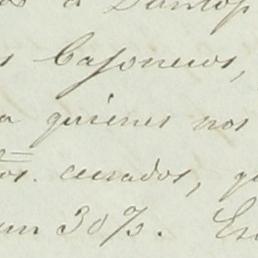 á Dunlop
Cajoneros,
a quienes nos
tos. cerrados, q
un 30%. En